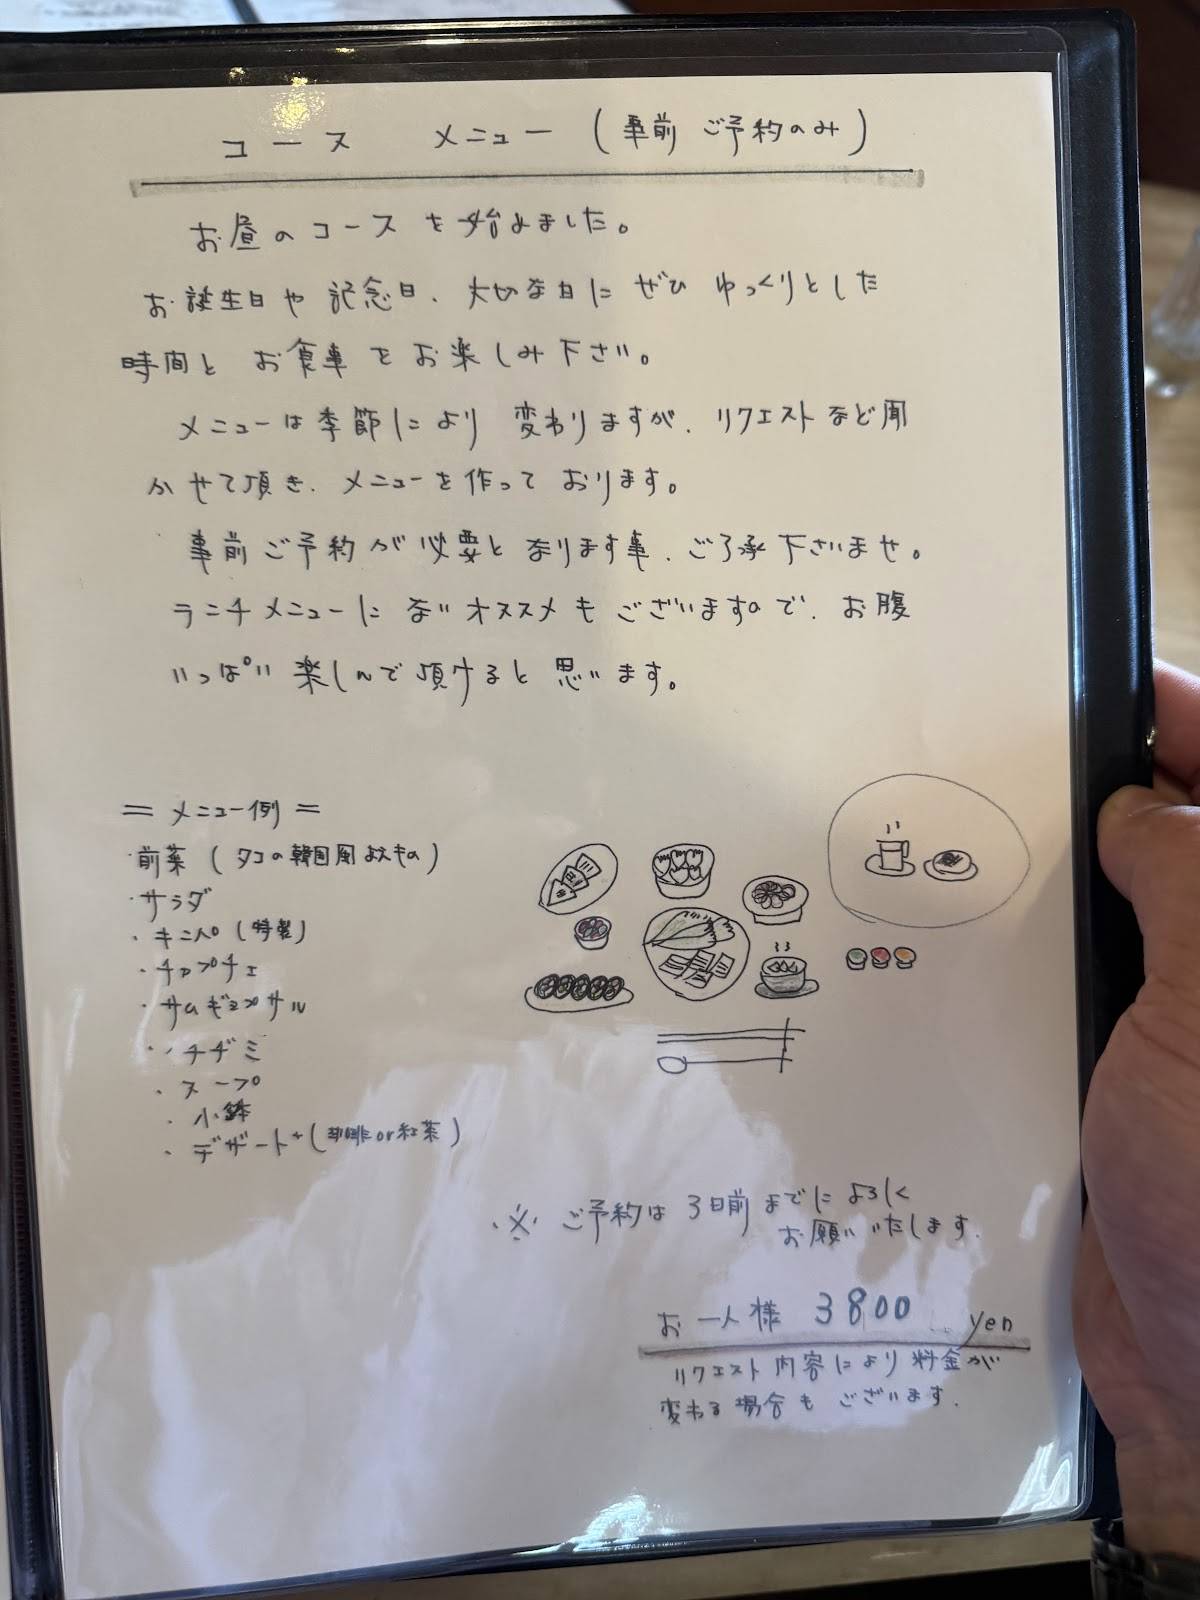 コース メニュー (事前 ご予約のみ)
お昼のコースを始めました。
お誕生日や記念日、大切な日に ぜひ ゆっくりとした
時間と お食事をお楽しみ下さい。
メニューは季節により 変わりますが、リクエストなど聞
かせて頂き、メニューを作って おります。
事前ご予約が必要となります事、ご了承下さいませ。
ランチメニューに ないオススメもございますので、お腹
いっぱい楽しんで頂けると思います。
= メニュー例 =
・前菜 (タコの韓国風あえもの)
・サラダ
・キンパ (特製)
・チャプチェ
・サムギョプサル
・チヂミ
・スープ
・小鉢
・デザート+(珈琲or紅茶)
※ ご予約は 3日前までに よろしく
お願いいたします.
お一人様 3800 yen
リクエスト内容により料金が
変わる場合もございます.